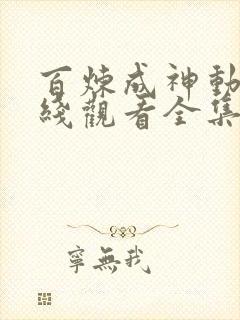 百煉成神動
綫觀看全集
寧無我